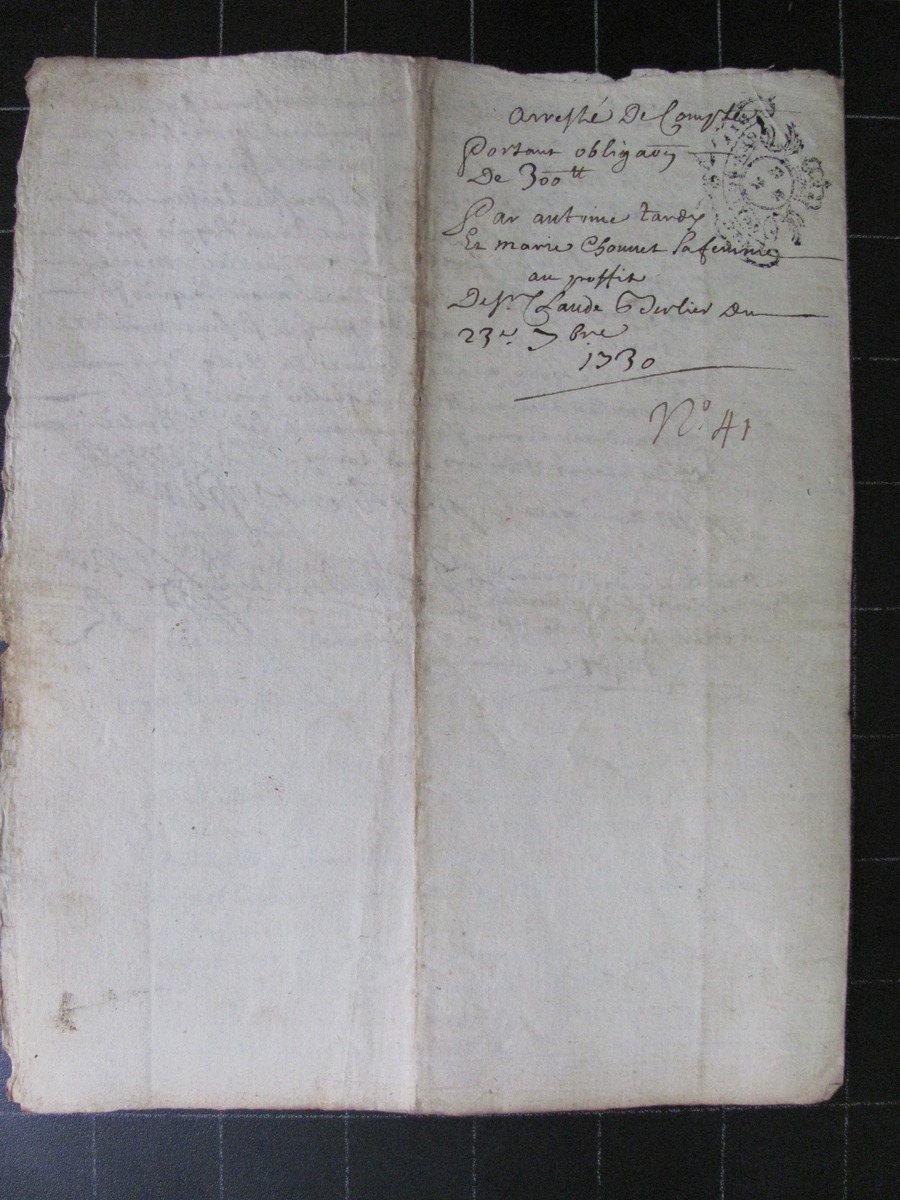 Arresté De Compte
Portant obligaōn
De 300ᵗᵗ
Par antoine tardy
Et marie Chouvet sa femme
au proffit
De Sʳ. Claude Verlier Du
23ᵉ. 7bre
1730
N°. 41